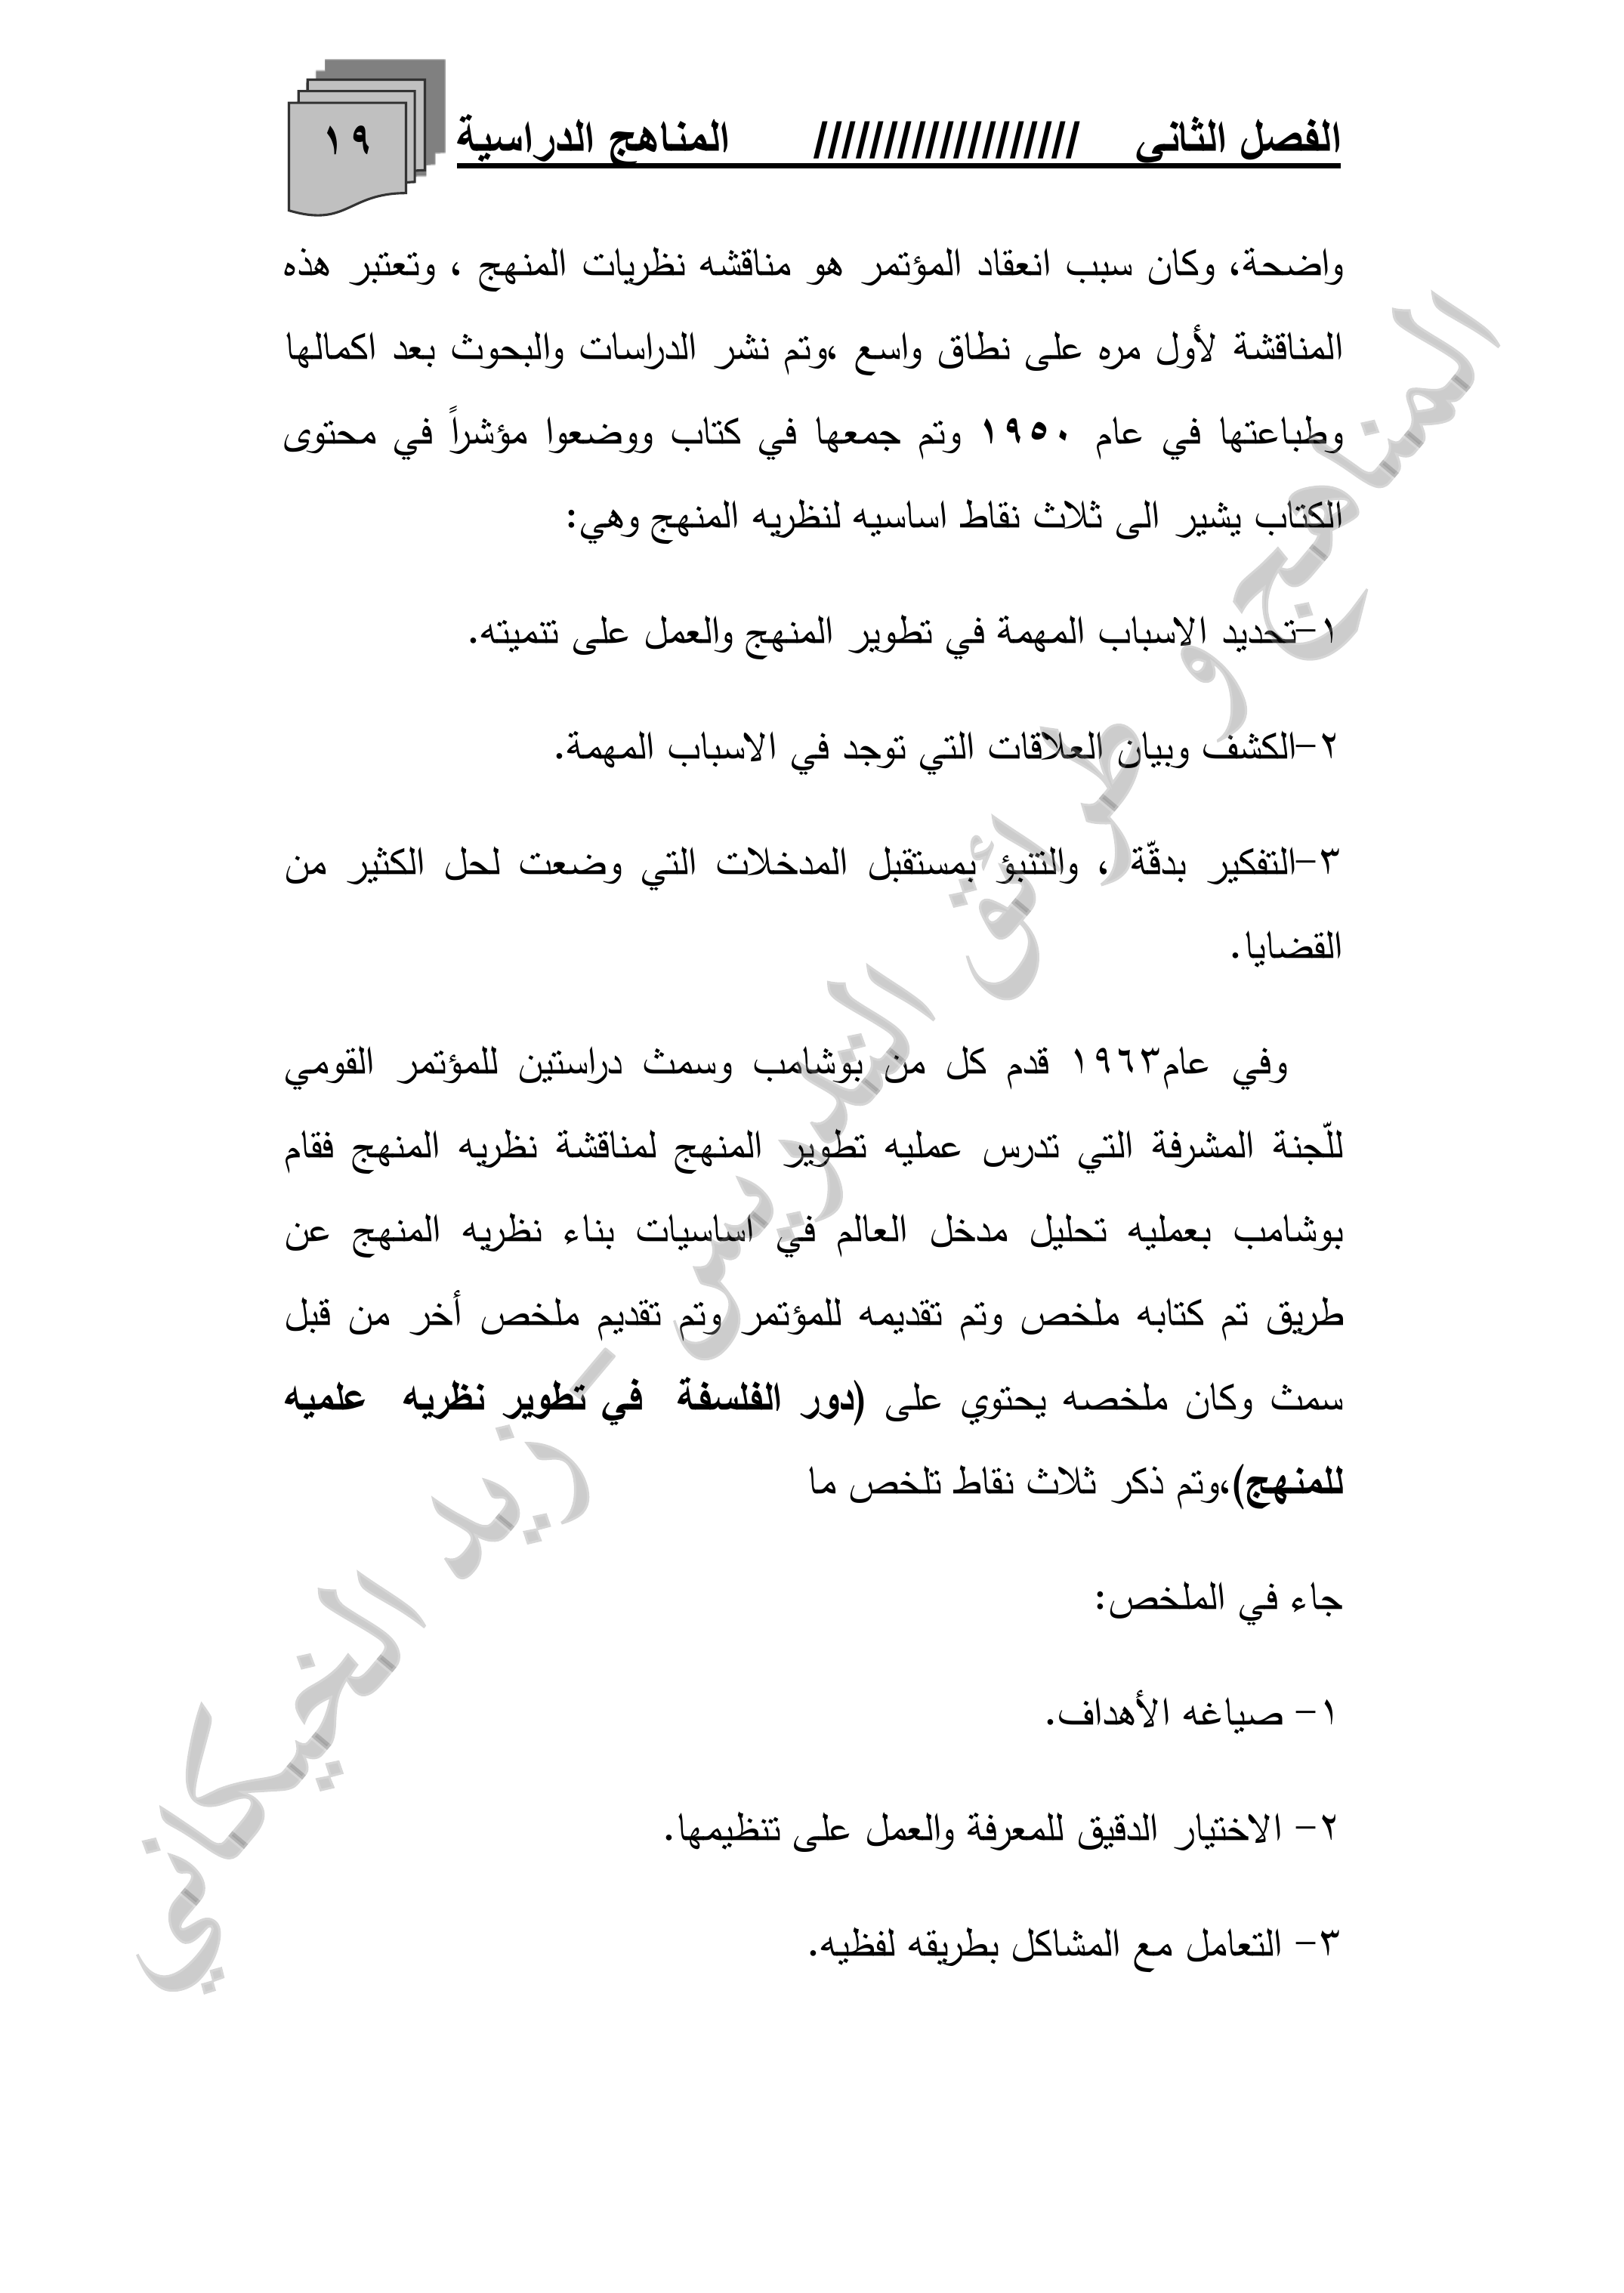 الفصل الثاني /////////////////// المناهج الدراسية ١٩
واضحة، وكان سبب انعقاد المؤتمر هو مناقشه نظريات المنهج ، وتعتبر هذه
المناقشة لأول مره على نطاق واسع ،وتم نشر الدراسات والبحوث بعد اكمالها
وطباعتها في عام ١٩٥٠ وتم جمعها في كتاب ووضعوا مؤشراً في محتوى
الكتاب يشير الى ثلاث نقاط اساسيه لنظريه المنهج وهي:
١-تحديد الاسباب المهمة في تطوير المنهج والعمل على تنميته.
٢-الكشف وبيان العلاقات التي توجد في الاسباب المهمة.
٣-التفكير بدقّة ، والتنبؤ بمستقبل المدخلات التي وضعت لحل الكثير من
القضايا.
وفي عام١٩٦٣ قدم كل من بوشامب وسمث دراستين للمؤتمر القومي
للّجنة المشرفة التي تدرس عمليه تطوير المنهج لمناقشة نظريه المنهج فقام
بوشامب بعمليه تحليل مدخل العالم في اساسيات بناء نظريه المنهج عن
طريق تم كتابه ملخص وتم تقديمه للمؤتمر وتم تقديم ملخص أخر من قبل
سمث وكان ملخصه يحتوي على (دور الفلسفة في تطوير نظريه علميه
للمنهج)،وتم ذكر ثلاث نقاط تلخص ما
جاء في الملخص:
١- صياغه الأهداف.
٢- الاختيار الدقيق للمعرفة والعمل على تنظيمها.
٣- التعامل مع المشاكل بطريقه لفظيه.
المناهج و طرائق التدريس - زيد الخيكاني